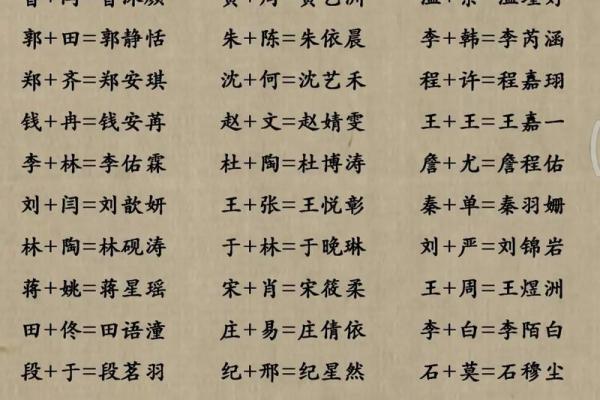 郭+田=郭静恬 朱+陈=朱依晨 李+韩=李芮涵
郑+齐=郑安琪 沈+何=沈艺禾 程+许=程嘉珝
钱+冉=钱安苒 赵+文=赵婧雯 王+王=王嘉一
李+林=李佑霖 杜+陶=杜博涛 詹+尤=詹程佑
刘+闫=刘歆妍 王+张=王悦彰 秦+单=秦羽姗
林+陶=林砚涛 于+林=于晚琳 刘+严=刘锦岩
蒋+姚=蒋星瑶 宋+肖=宋筱柔 王+周=王煜洲
田+佟=田语潼 庄+易=庄倩依 李+白=李陌白
段+于=段茗羽 纪+邢=纪星然 石+莫=石穆尘